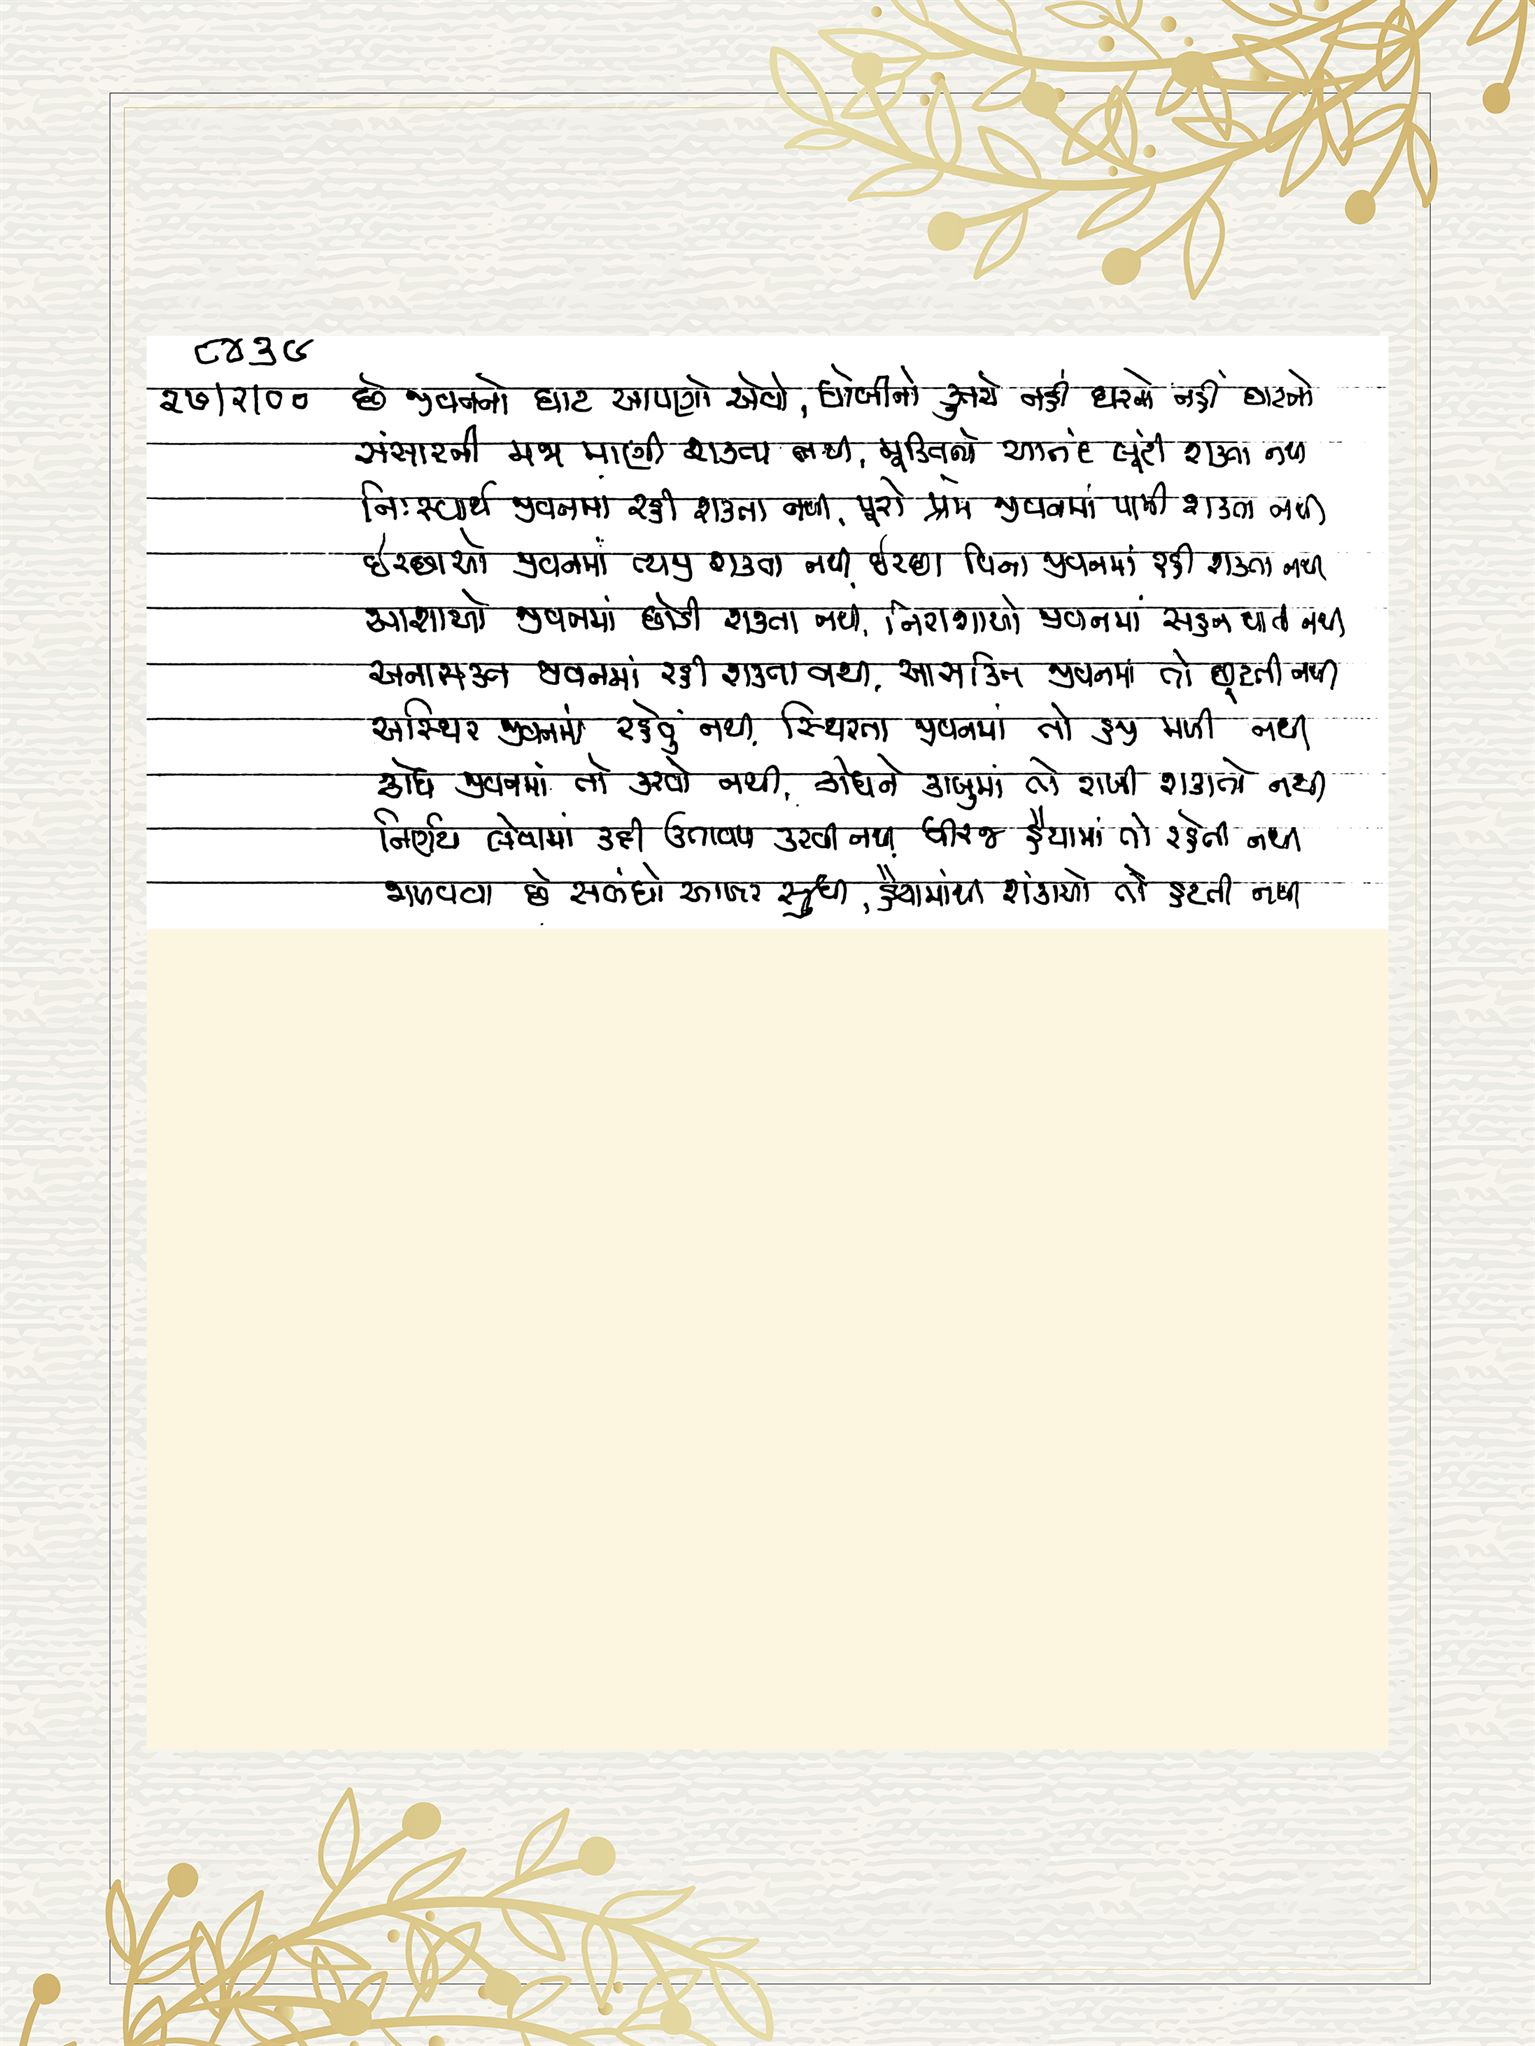 ૮૪૩૯
૨૭/૨/૦૦ છે જીવનનો ઘાટ આપણો એવો, ધોબીનો કૂતરો નહીં ઘરનો નહીં ઘાટનો
સંસારની મજા માણી શક્તા નથી, મુક્તિનો આનંદ લૂંટી શક્તા નથી
નિઃસ્વાર્થ જીવનમાં રહી શક્તા નથી, પૂરો પ્રેમ જીવનમાં પામી શક્તા નથી
ઇચ્છાઓ જીવનમાં ત્યજી શક્તા નથી, ઇચ્છા વિના જીવનમાં રહી શક્તા નથી
આશાઓ જીવનમાં છોડી શક્તા નથી, નિરાશાઓ જીવનમાં સહન થાતી નથી
અનાસક્ત જીવનમાં રહી શક્તા નથી, આસક્તિ જીવનમાં તો છૂટતી નથી
અસ્થિર જીવનમાં રહેવું નથી, સ્થિરતા જીવનમાં તો હજી મળી નથી
ક્રોધ જીવનમાં તો કરવો નથી, ક્રોધને કાબુમાં તો રાખી શકાતો નથી
નિર્ણય લેવામાં કદી ઉતાવળ કરવી નથી, ધીરજ હૈયામાં તો રહેતી નથી
જાળવવા છે સબંધો આખર સુધી, હૈયામાંથી શંકાઓ તો હટતી નથી